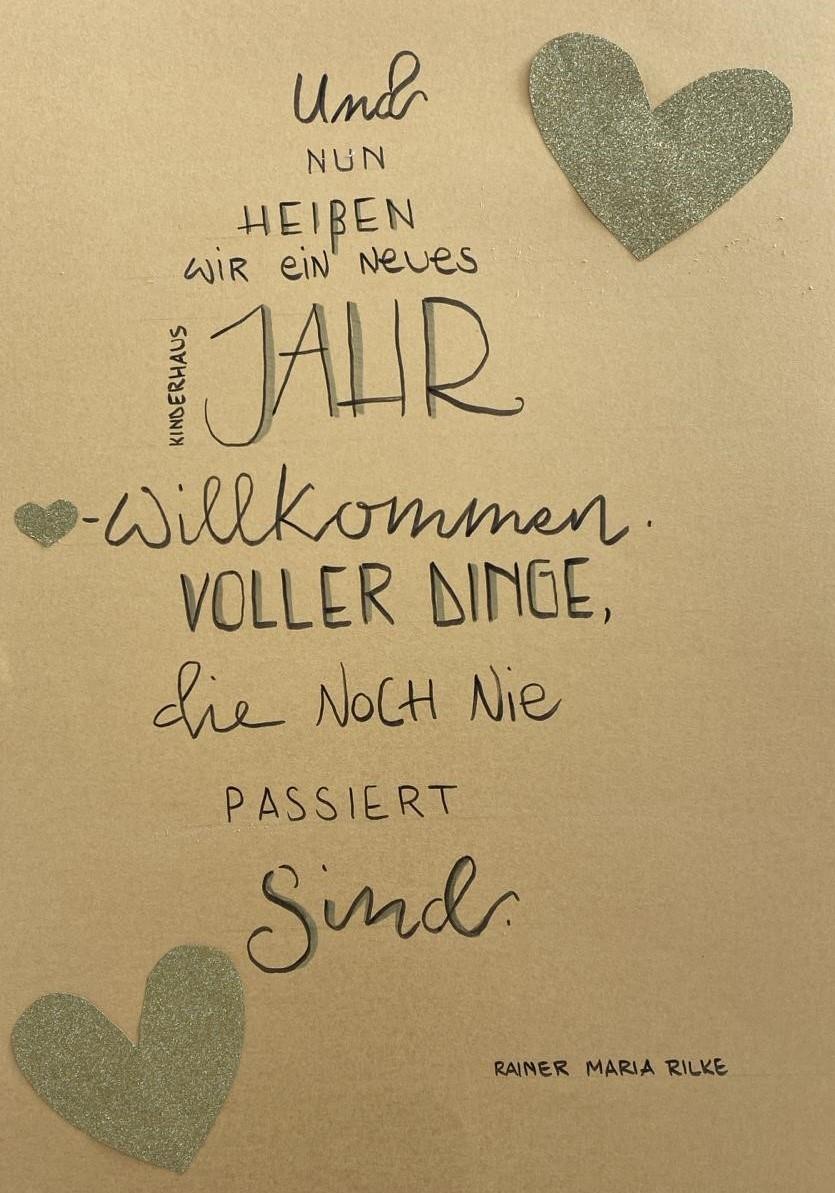 Und
NUN
HEIßEN
WIR EIN NEUES
KINDERHAUS
JAHR
-Willkommen.
VOLLER DINGE,
die NOCH Nie
PASSIERT
Sind.
RAINER MARIA RILKE